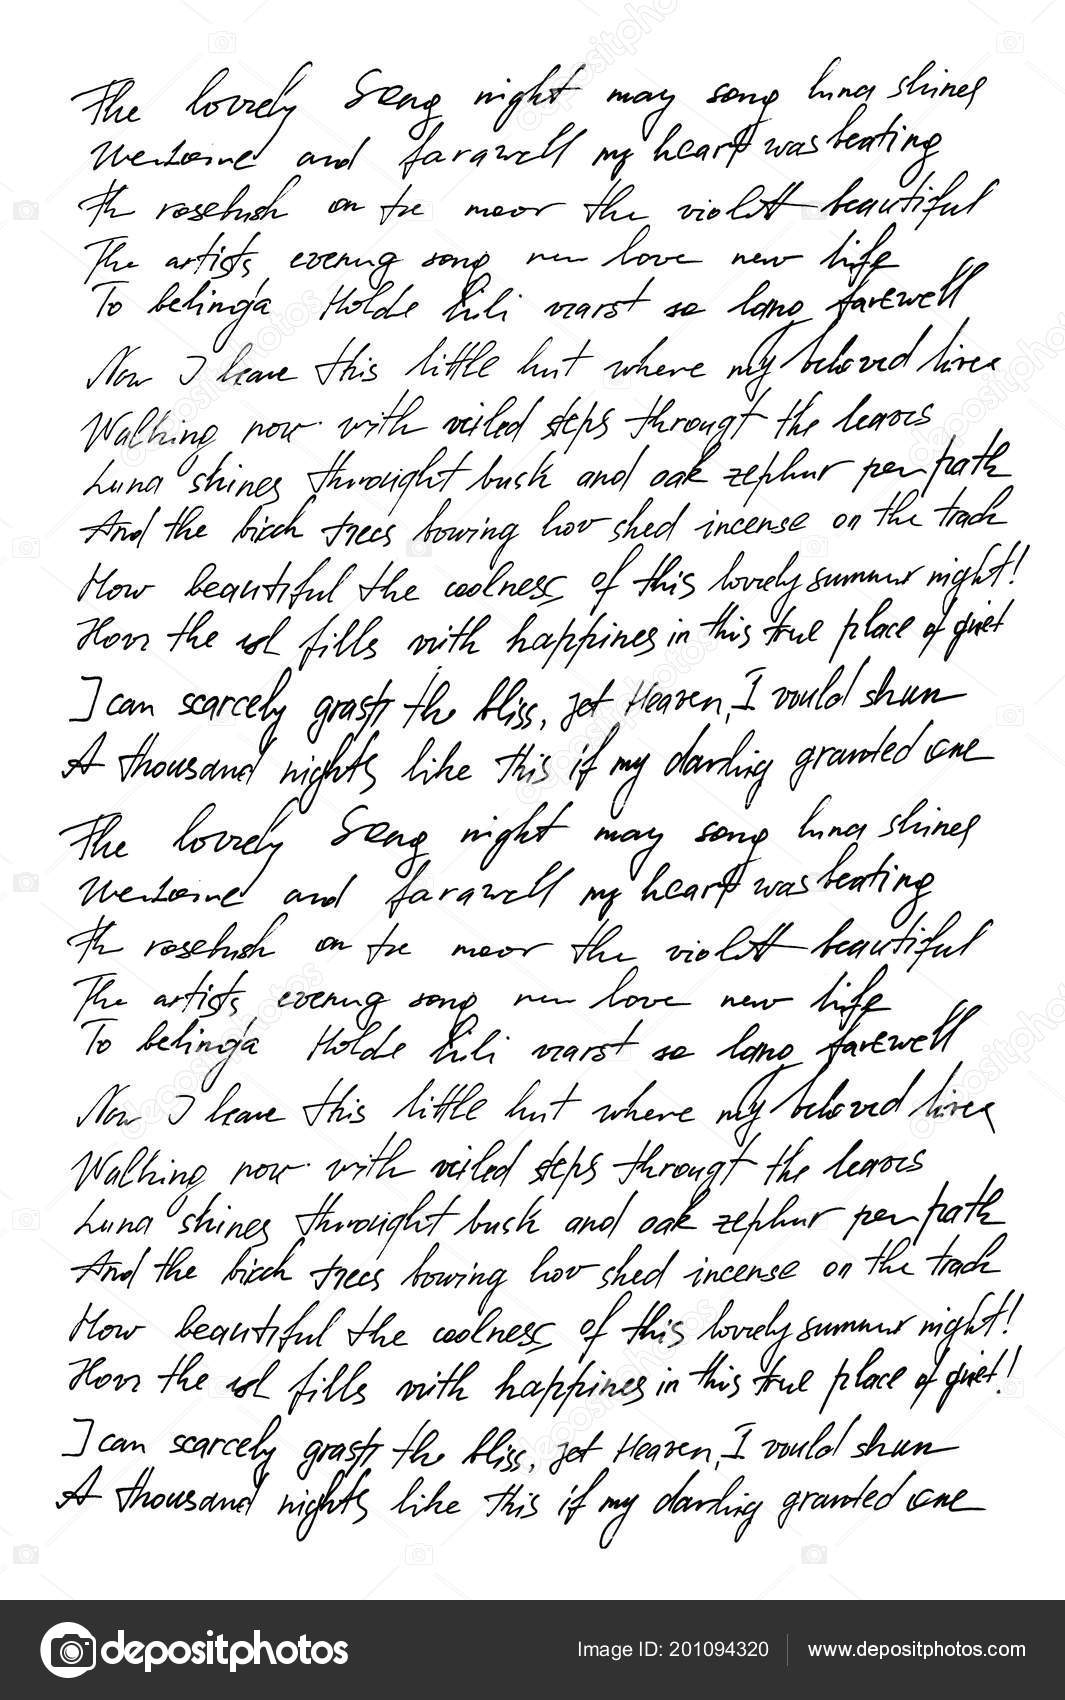 The lovely song night may song luna shines
Welcome and farawell my heart was beating
Th rosebush on the moor the violett beautiful
The artists evening song new love new life
To belinda Holde Lili warst so long farewell
Now I leave this little hut where my beloved lives
Walking now with veiled steps througt the leaves
Luna shines throught busk and oak zephur per path
And the birch trees bowing low shed incense on the track
How beautiful the coolness of this lovely summer night!
How the sol fills with happines in this true place of quiet
I can scarcely grasp the bliss, yet Heaven, I would shun
A thousand nights like this if my darling granted one
The lovely song night may song luna shines
Welcome and farawell my heart was beating
Th rosebush on the moor the violett beautiful
The artists evening song new love new life
To belinda Holde Lili warst so long farewell
Now I leave this little hut where my beloved lives
Walking now with veiled steps througt the leaves
Luna shines throught busk and oak zephur per path
And the birch trees bowing low shed incense on the track
How beautiful the coolness of this lovely summer night!
How the sol fills with happines in this true place of quiet!
I can scarcely grasp the bliss, yet Heaven, I would shun
A thousand nights like this if my darling granted one
depositphotos Image ID: 201094320 www.depositphotos.com